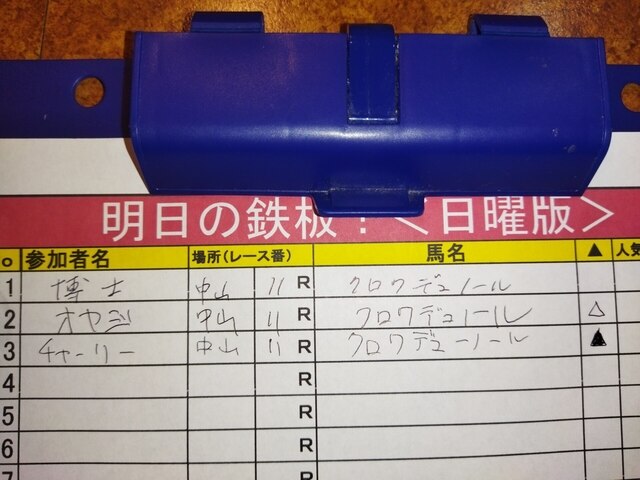 明日の鉄板！＜日曜版＞
o 参加者名 場所(レース番) 馬名 ▲ 人気
1 博士 中山 11 R クロワデュノール
2 オヤジ 中山 11 R クロワデュノール △
3 チャーリー 中山 11 R クロワデューノール ▲
4 R
5 R
6 R
7